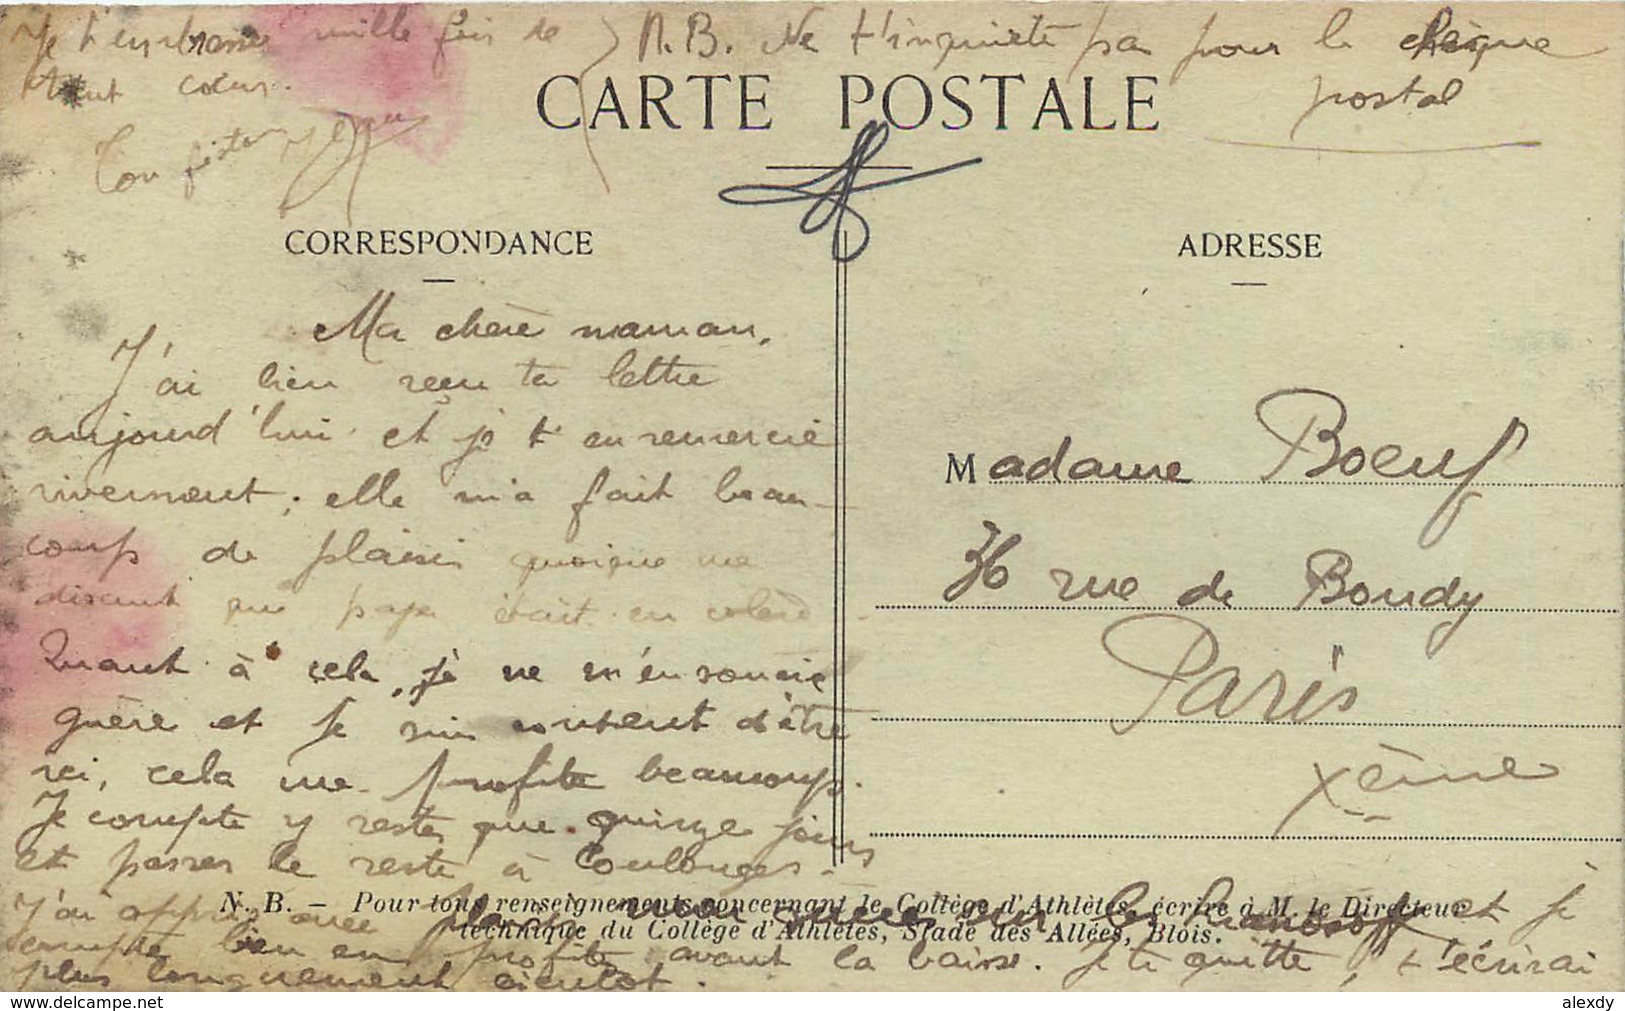 Je t'embrasse mille fois de
tout cœur.
Ton
N.B. Ne t'inquiète pas pour le chèque
postal
CARTE POSTALE
CORRESPONDANCE
ADRESSE
Ma chère maman,
J'ai bien reçu ta lettre
aujourd'hui et je t'en remercie
vivement ; elle m'a fait beau-
coup de plaisir quoique me
disant que papa était en colère.
Quant à cela, je ne m'en soucie
guère et je suis content d'être
ici, cela me profite beaucoup.
Je compte y rester que quinze jours
et passer le reste à Coulonges.
J'ai appris avec mon succès sur les et je
compte bien en profiter avant la baisse. Je te quitte, t'écrirai
plus longuement bientôt.
Madame Boeuf
36 rue de Bondy
Paris
Xème
N. B. — Pour tous renseignements concernant le Collège d'Athlètes, écrire à M. le Directeur
technique du Collège d'Athlètes, Stade des Allées, Blois.
alexdy